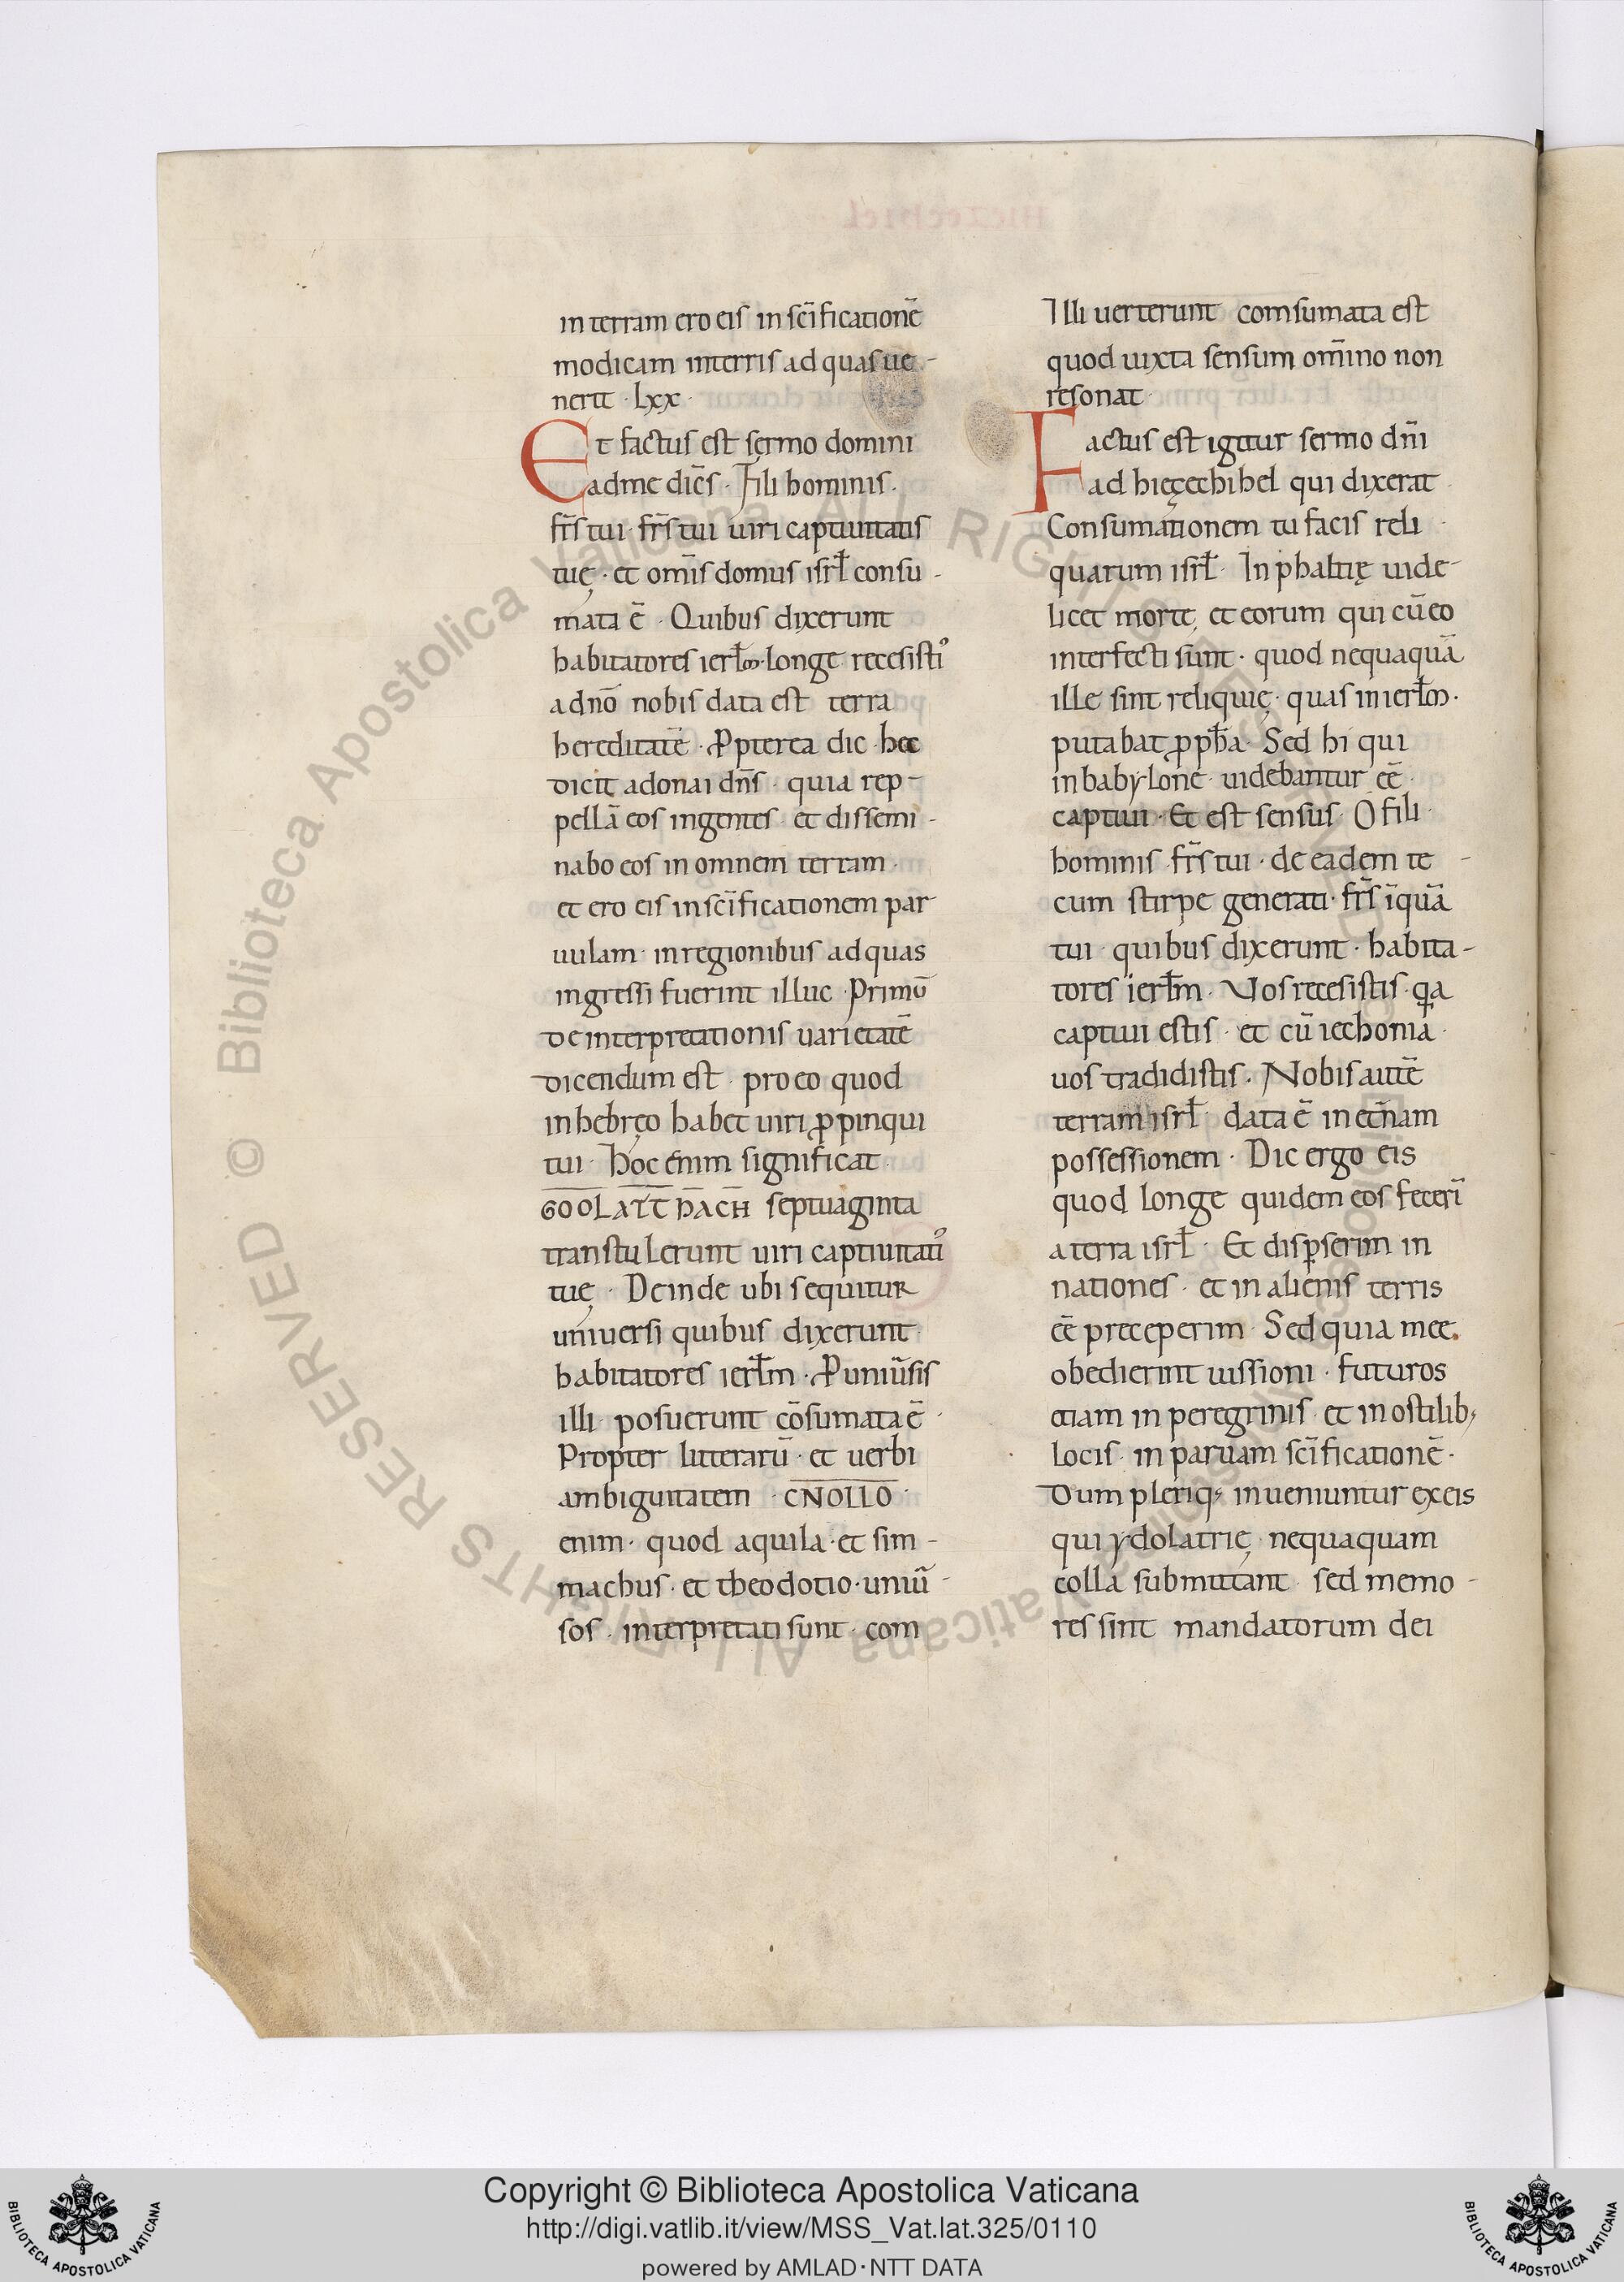 in terram ero eis in sc̄ificationē
modicam interris ad quas ue-
nerit · lxx ·
Et factus est sermo domini
ad me dic̄s · Fili hominis ·
fr̄s tui · fr̄s tui uiri captiuitatis
tuę · et om̄is domus isrł consu-
mata ē · Quibus dixerunt
habitatores ierłm · longe recesisti᾿
a dn̄o nobis data est terra
hereditatē · Ꝓpterea dic · hec
dicit adonai dn̄s · quia rep-
pellā eos in gentes et dissemi-
nabo eos in omnem terram ·
et ero eis in sc̄ificationem par
uulam · in regionibus ad quas
ingressi fuerint illuc · Primū
de interpretationis uarietatē
dicendum est · pro eo quod
in hebręo habet uiri ꝓpinqui
tui · Hoc enim significat ·
septuaginta
transtulerunt uiri captiuitati᾿
tuę · Deinde ubi sequitur
uniuersi quibus dixerunt ·
habitatores ierłm · Ꝓ uniūsis
illi · posuerunt cōsumata ē ·
Propter litterarū · et uerbi
ambiguitatem · CNOLLO ·
enim · quod aquila · et sim-
machus · et theodotio · uniū-
sos · interpretati sunt · com
Illi uerterunt comsumata est
quod iuxta sensum om̄ino non
resonat ·
Factus est igitur sermo dn̄i
ad hięzechihel qui dixerat ·
Consumationem tu facis reli ·
quarum isrł · In phaltię uide-
licet morte, et eorum qui cū eo
interfecti sunt · quod nequaquā
ille sint reliquię · quas in ierłm ·
putabat ꝓpħa · Sed hi qui
in babylone · uidebantur eē ·
captiui · Et est sensus · O fili ·
hominis · fr̄s tui · de eadem te -
cum stirpe generati · fr̄s īquā
tui · quibus dixerunt · habita-
tores ierłm · Uos recesistis · qa
captiui estis · et cū iechonia ·
uos tradidistis · Nobis autē
terram isrł · data ē in etn̄am
possessionem · Dic ergo eis
quod longe quidem eos fecerī
a terra isrł · Et disꝑserim in
nationes · et in alienis terris
eē preceperim · Sed quia mee
obedierint iussioni · futuros
etiam in peregrinis · et in ostilib;
locis · in paruam sc̄ificationē ·
Dum pleriq; inueniuntur ex eis
qui ydolatrię nequaquam
colla submittant · sed memo-
res sint mandatorum dei
Copyright © Biblioteca Apostolica Vaticana
http://digi.vatlib.it/view/MSS_Vat.lat.325/0110
powered by AMLAD·NTT DATA
BIBLIOTECA APOSTOLICA VATICANA
BIBLIOTECA APOSTOLICA VATICANA
© Biblioteca Apostolica Vaticana ALL RIGHTS RESERVED